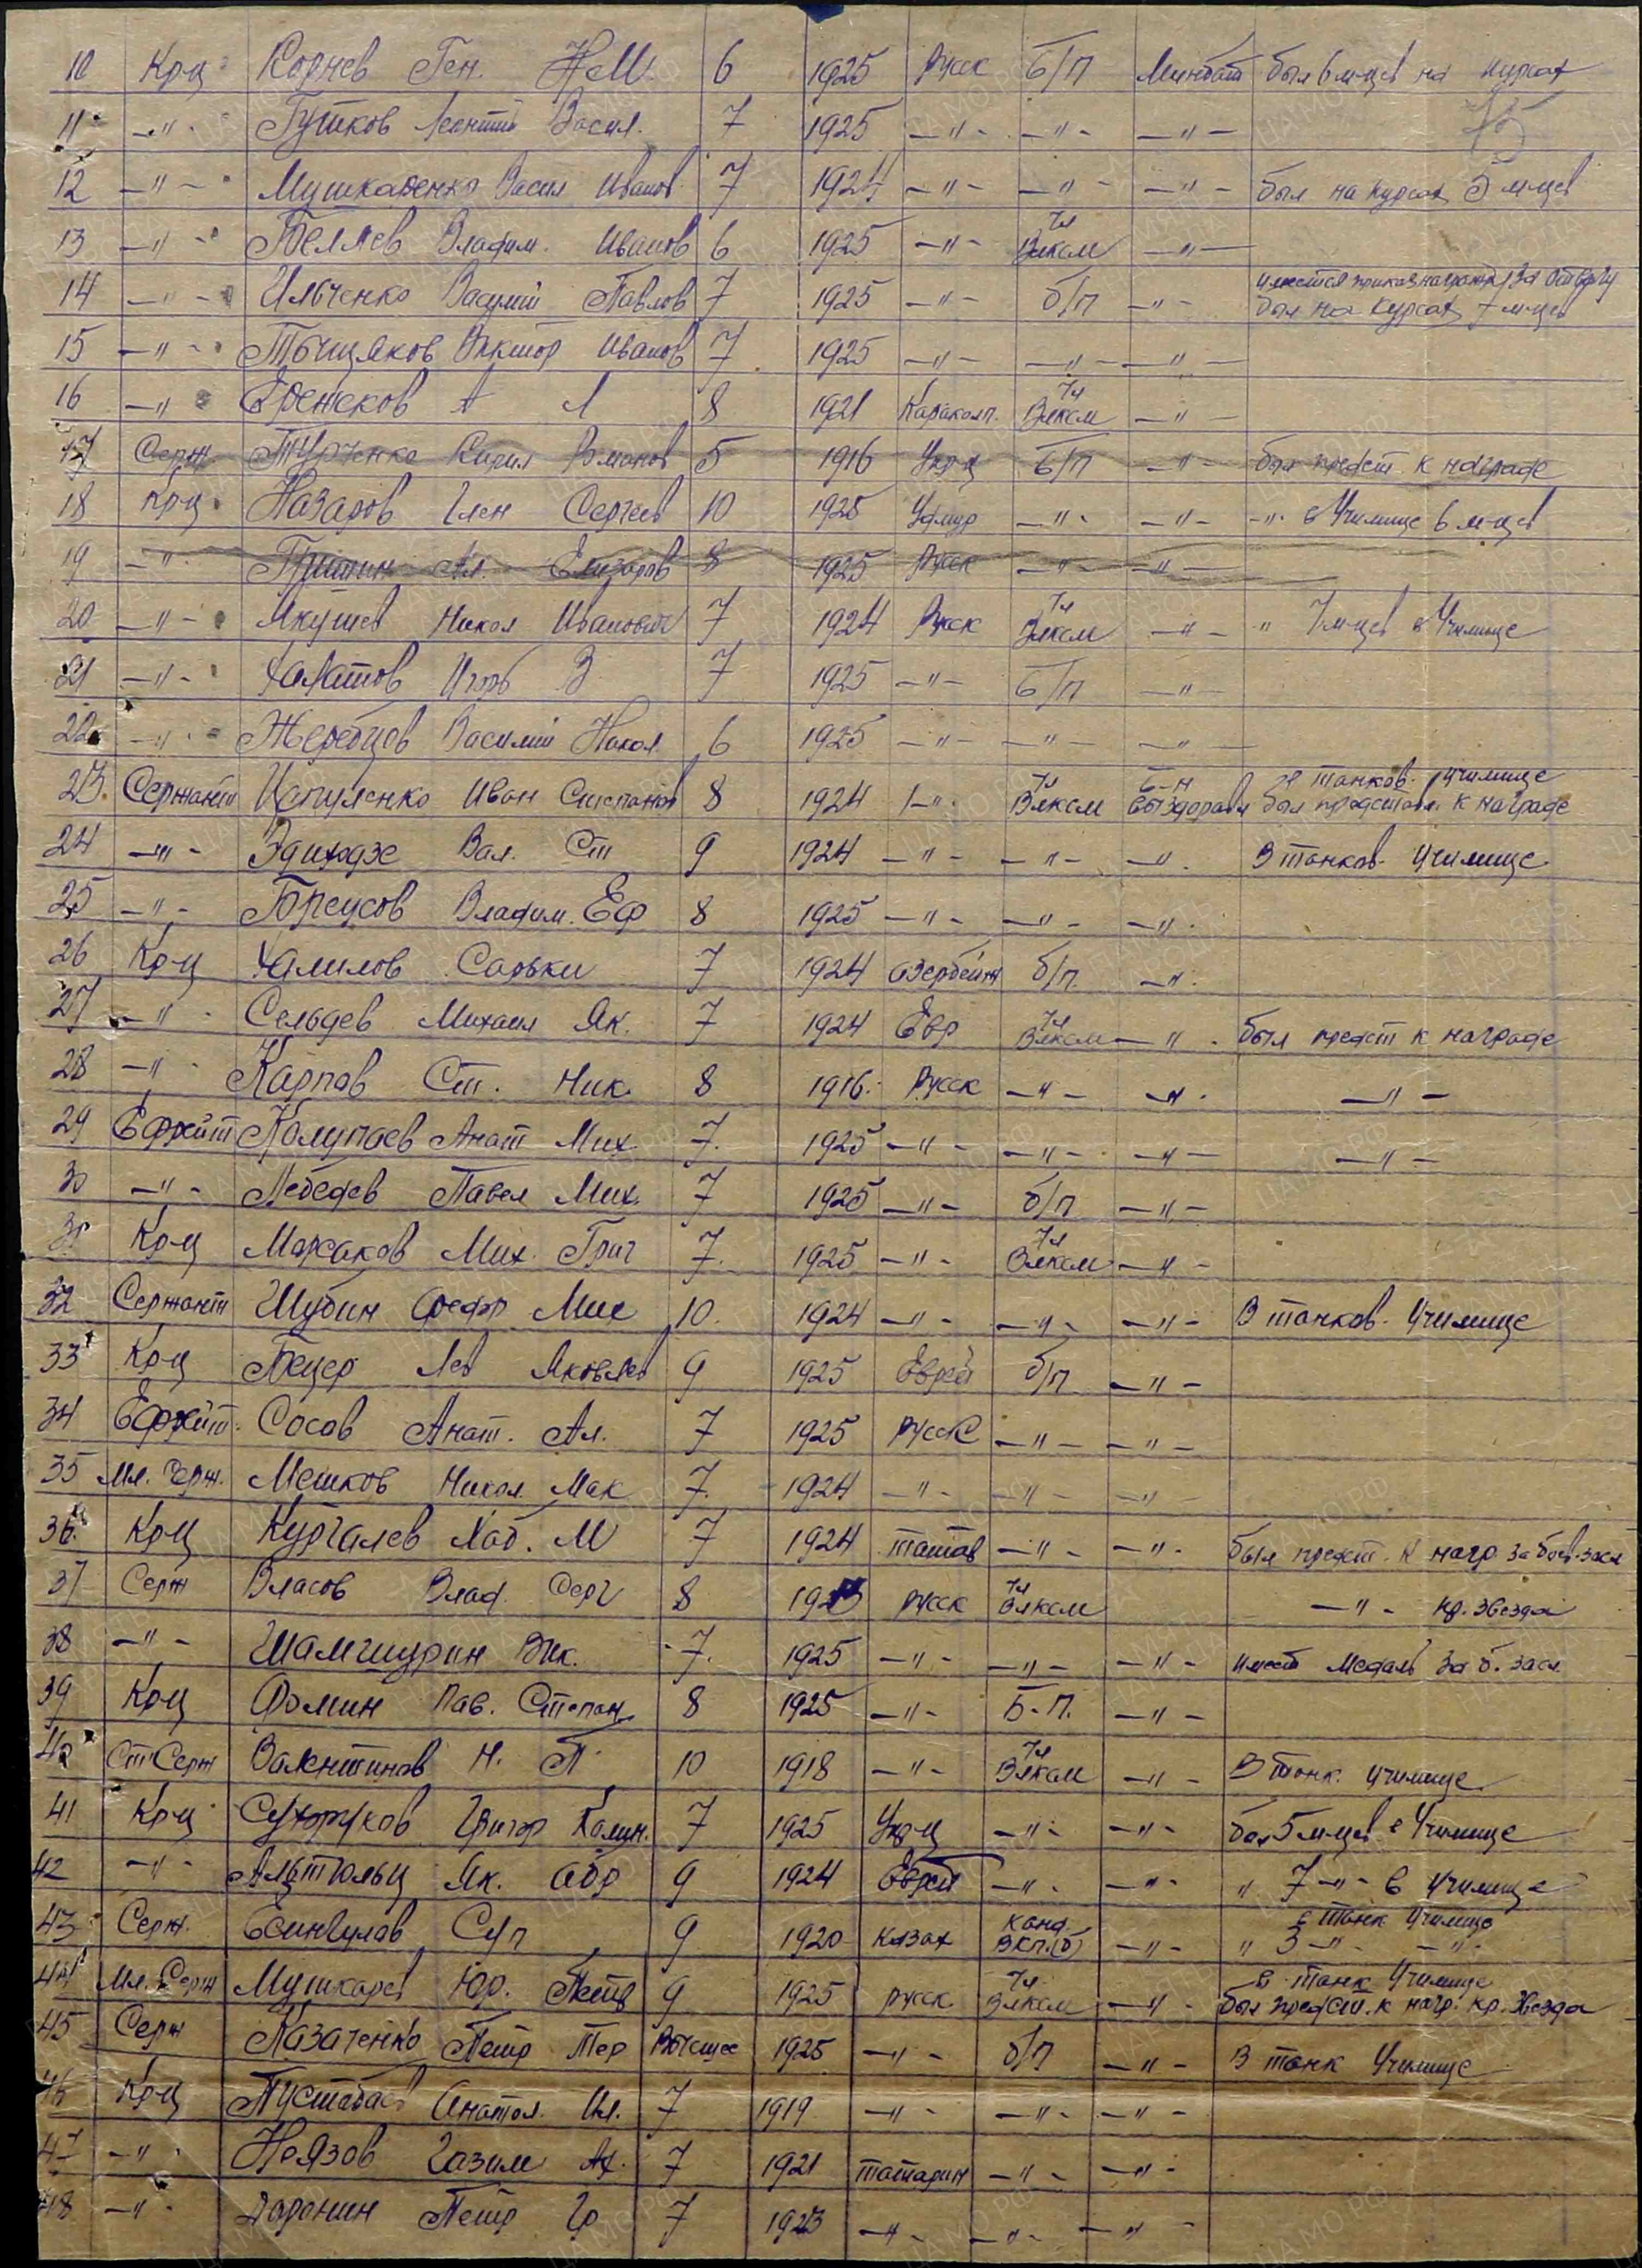 10 Кр-ц Корнев Ген. Н.М. 6 1925 Русск Б/П Минбат был 6 м-цев на курсах
11 —"— Гутков Леонтий Васил. 7 1925 —"— —"— —"—
12 —"— Васил Иванов 7 1924 —"— —"— —"— был на курсах 5 м-цев
13 —"— Беляев Владим. Иванов 6 1925 —"— Чл Влксм —"—
14 —"— Ильченко Василий Павлов 7 1925 —"— б/п —"— был на курсах 7 м-цев
15 —"— Виктор Иванов 7 1925 —"— —"— —"—
16 —"— А 8 1921 Каракалп. Чл Влксм —"—
17 Серж. Турченко Кирил Романов 5 1916 Укр-ц Б/П —"— был предст. к награде
18 Кр-ц Назаров Глен Сергеев 10 1925 —"— —"— —"— в Училище 6 м-цев
19 —"— Гришин Ал. Елизаров 8 1925 Русск —"— —"—
20 —"— Якушев Никол Иванович 7 1924 Русск Чл Влксм —"— " 7 м-цев в Училище
21 —"— Халатов Игорь В 7 1925 —"— Б/П —"—
22 —"— Жеребцов Василий Никол. 6 1925 —"— —"— —"—
23. Сержант Цапуленко Иван Степанов 8 1924 —"— Чл Влксм Б-н выздоравл в танков. училище был представл. к награде
24 —"— Вал. Ст 9 1924 —"— —"— —"— В танков. училище
25 —"— Бреусов Владим. Еф 8 1925 —"— —"— —"—
26 Кр-ц Халилов 7 1924 Азербейж б/п. —"—
27 —"— Михаил Як. 7 1924 Евр Чл Влксм —"— был предст к награде
28 —"— Карпов Ст. Ник. 8 1916. Русск —"— —"— —"—
29 Ефрейт Колупаев Анат Мих 7. 1925 —"— —"— —"— —"—
30 —"— Лебедев Павел Мих. 7 1925 —"— б/п —"—
31 Кр-ц Мих. Григ 7. 1925 —"— Чл Влксм —"—
32 Сержант Шубин Федор Мих 10. 1924 —"— —"— —"— В танков. Училище
33 Кр-ц Лев Яковлев 9 1925 Еврей б/п —"—
34 Ефрейт. Сосов Анат. Ал. 7 1925 Русск —"— —"—
35 Мл. Серж. Мешков Никол. Мак 7. 1924 —"— —"— —"—
36. Кр-ц Кургалев Хаб. М 7 1924 татар —"— —"— был предст. к нагр. за боев. засл
37 Серж Власов Влад. Серг 8 русск Чл Влксм —"— кр. звезда
38 —"— Шамшурин Вик. 7. 1925 —"— —"— —"— имеет медаль за б. засл.
39 Кр-ц Фомин Пав. Степан. 8 1925 —"— Б.П. —"—
40 Ст Серж Валентинов Н. П 10 1918 —"— Чл Влксм —"— В танк. училище
41 Кр-ц Сухоруков Григор 7 1925 Укр-ц —"— —"— был 5 м-цев в Училище
42 —"— Як. Абр 9 1924 Еврей —"— —"— " 7 —"— в училище
43 Серж. Есингулов Суп 9 1920 Казах Канд ВКП(б) —"— в танк училище " 3 —"— —"—
44 Мл. Серж Мушкарев Юр. Петр 9 1925 русск. Чл Влксм —"— в танк Училище был предст. к нагр. кр. звезда
45 Серж Казаченко Петр Тер Высшее 1925 —"— б/п —"— В танк Училище
46 Кр-ц Анатол. Ил. 7 1919 —"— —"— —"—
47 —"— Ниязов Газим Ах. 7 1921 татарин —"— —"—
48 —"— Доронин Петр Гр 7 1923 —"— —"— —"—